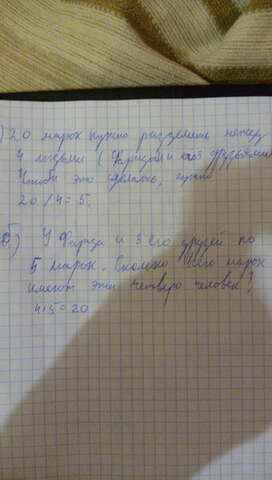 ) 20 марок нужно разделить между
4 людьми (Фаридом и его друзьями
Чтобы это сделать, нужно
20/4=5.
б) У Фарида и 3 его друзей по
5 марок. Сколько всего марок
имеют эти четверо человек?
4·5=20